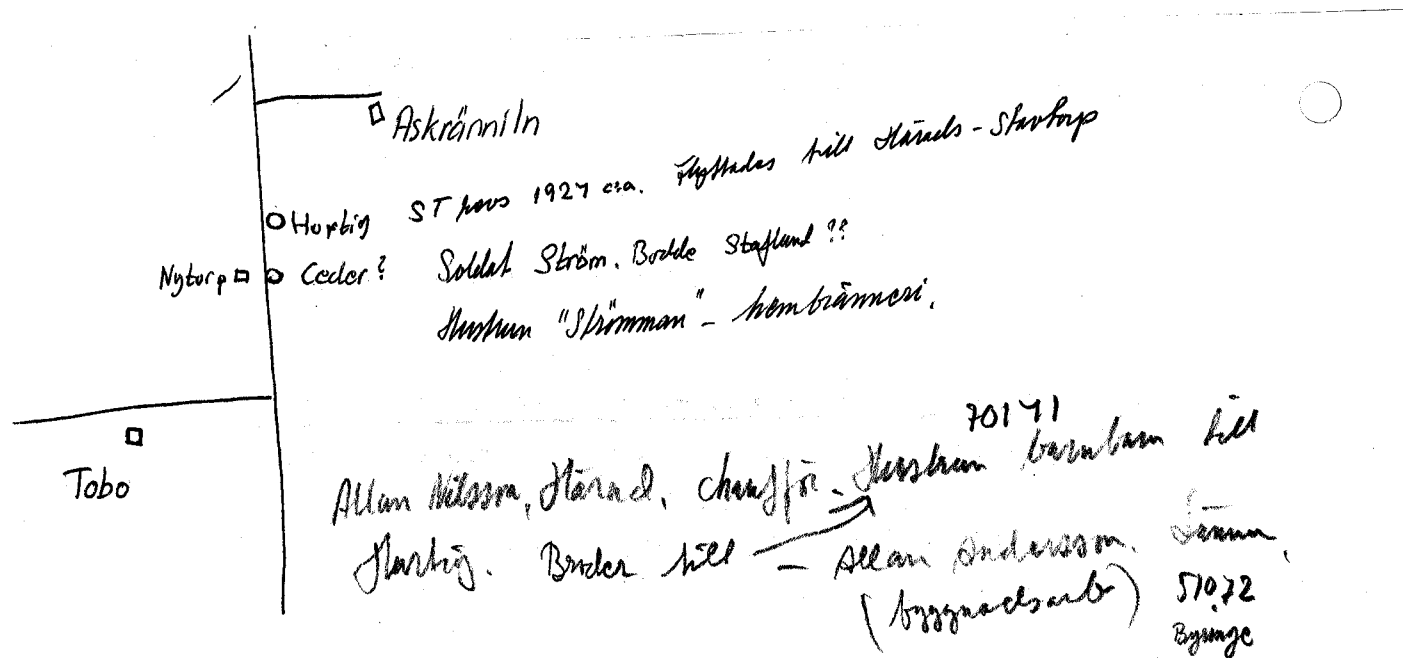 Askränniln
Hurtig ST revs 1927 c:a. Flyttades till Härads-Stavtorp
Nytorp Ceder? Soldat Ström. Bodde Staflund ??
Hustrun "Strömman" - hembränneri.
70171
Tobo
Allan Nilsson, Härad, chaufför. Hustrun barnbarn till
Hurtig. Broder till - Allan Andersson. Länna,
(byggnadsarb) 51072
Byringe